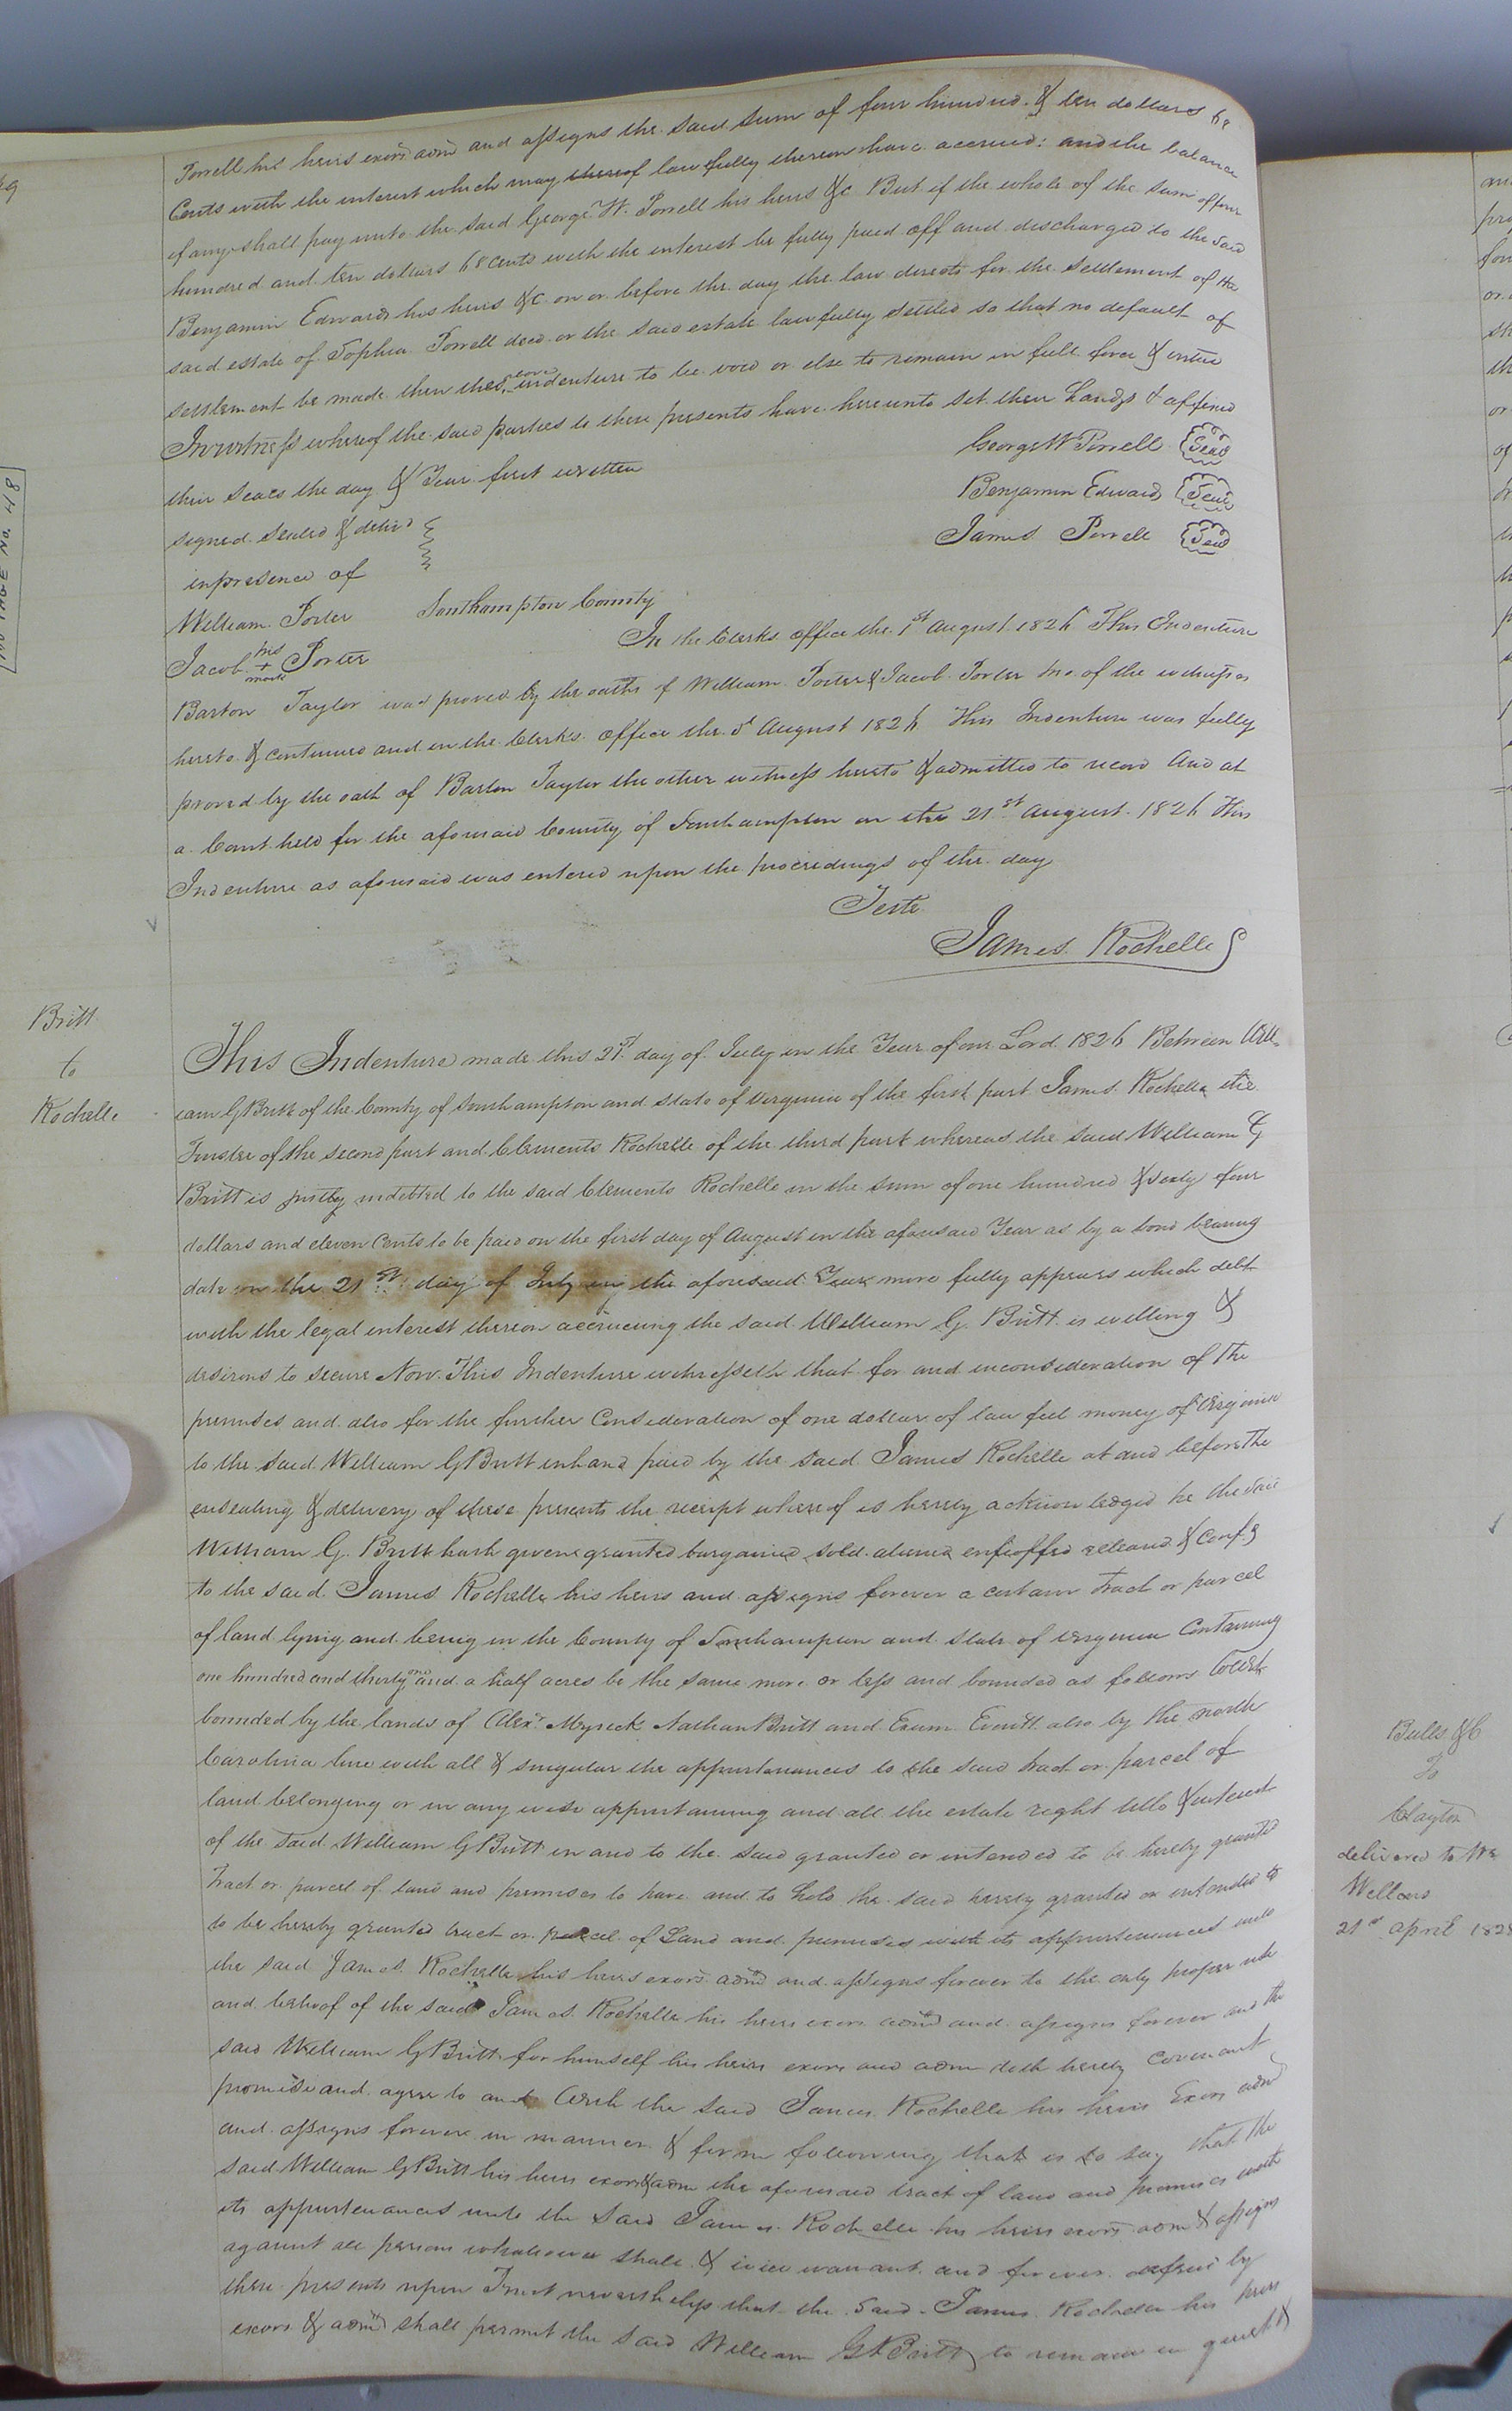 Porrell his heirs exors adm and assigns the said sum of four hundred & ten dollars 68
Cents with the interest which may thereof lawfully thereon have accrued: and the balance
if any shall pay unto the said George W. Porrell his heirs &c But if the whole of the sum of four
hundred and ten dollars 68 cents with the interest be fully paid off and discharged to the said
Benjamin Edwards his heirs &c on or before the day the law directs for the settlement of the
said estate of Sophia Porrell decd or the said estate lawfully settled so that no default of
settlement be made then the above indenture to be void or else to remain in full force & virtue
In witness whereof the said parties to these presents have hereunto set their hands & affixed
their seals the day & Year first written
George W Porrell Seal
signed sealed & delivd
Benjamin Edwards Seal
in presence of
James Porrell Seal
William Porter Southampton County
Jacob his + mark Porter In the Clerks office the 1st August 1826 This Indenture
Barton Taylor was proved by the oaths of William Porter & Jacob Porter two of the witnesses
hereto & continued and in the Clerks office the August 1826 This Indenture was fully
proved by the oath of Barton Taylor the other witness hereto & admitted to record And at
a Court held for the aforesaid County of Southampton on the 21st August 1826 This
Indenture as aforesaid was entered upon the proceedings of the day
Teste
James Rochelle
Britt
to
Rochelle
This Indenture made this 21st day of July in the Year of our Lord 1826 Between Will
iam G Britt of the County of Southampton and State of Virginia of the first part James Rochelle the
Trustee of the second part and Clements Rochelle of the third part whereas the said William G
Britt is justly indebted to the said Clements Rochelle in the sum of one hundred & sixty four
dollars and eleven Cents to be paid on the first day of August in the aforesaid Year as by a bond bearing
date on the 21st day of July in the aforesaid Year more fully appears which debt
with the legal interest thereon accrueing the said William G. Britt is willing &
desirous to secure Now This Indenture witnesseth that for and in consideration of the
premises and also for the further Consideration of one dollar of lawful money of Virginia
to the said William G Britt in hand paid by the said James Rochelle at and before the
ensealing & delivery of these presents the receipt whereof is hereby acknowledged he the said
William G. Britt hath given granted bargained sold aliened enfeoffed released & Conf
to the said James Rochelle his heirs and assigns forever a certain tract or parcel
of land lying and being in the County of Southampton and state of Virginia Containing
one hundred and thirty one and a half acres be the same more or less and bounded as follows
bounded by the lands of Alexr Myrick Nathan Britt and Exum Everitt also by the north
Carolina line with all & singular the appurtenances to the said tract or parcel of
land belonging or in any wise appertaining and all the estate right title & interest
of the said William G Britt in and to the said granted or intended to be hereby granted
Tract or parcel of land and premises to have and to hold the said hereby granted or intended to
to be hereby granted tract or parcel of Land and premises with its appurtenances unto
the said James Rochelle his heirs exors adm and assigns forever to the only proper use
and behoof of the said James Rochelle his heirs exors adm and assigns forever and the
said William G Britt for himself his heirs exors and adm doth hereby Covenant
promise and agree to and with the said James Rochelle his heirs Exors adm
and assigns forever in manner & form following that is to say that the
said William G Britt his heirs exors & adm the aforesaid tract of land and premises with
its appurtenances unto the said James Rochelle his heirs exors adm & assigns
against all persons whatsoever shall & will warrant and forever defend by
these presents upon Trust nevertheless that the said James Rochelle his heirs
exors & adm shall permit the said William G Britt to remain in quiet &
Butts &C
to
Clayton
delivered to Wm
Wellons
21st april 1828